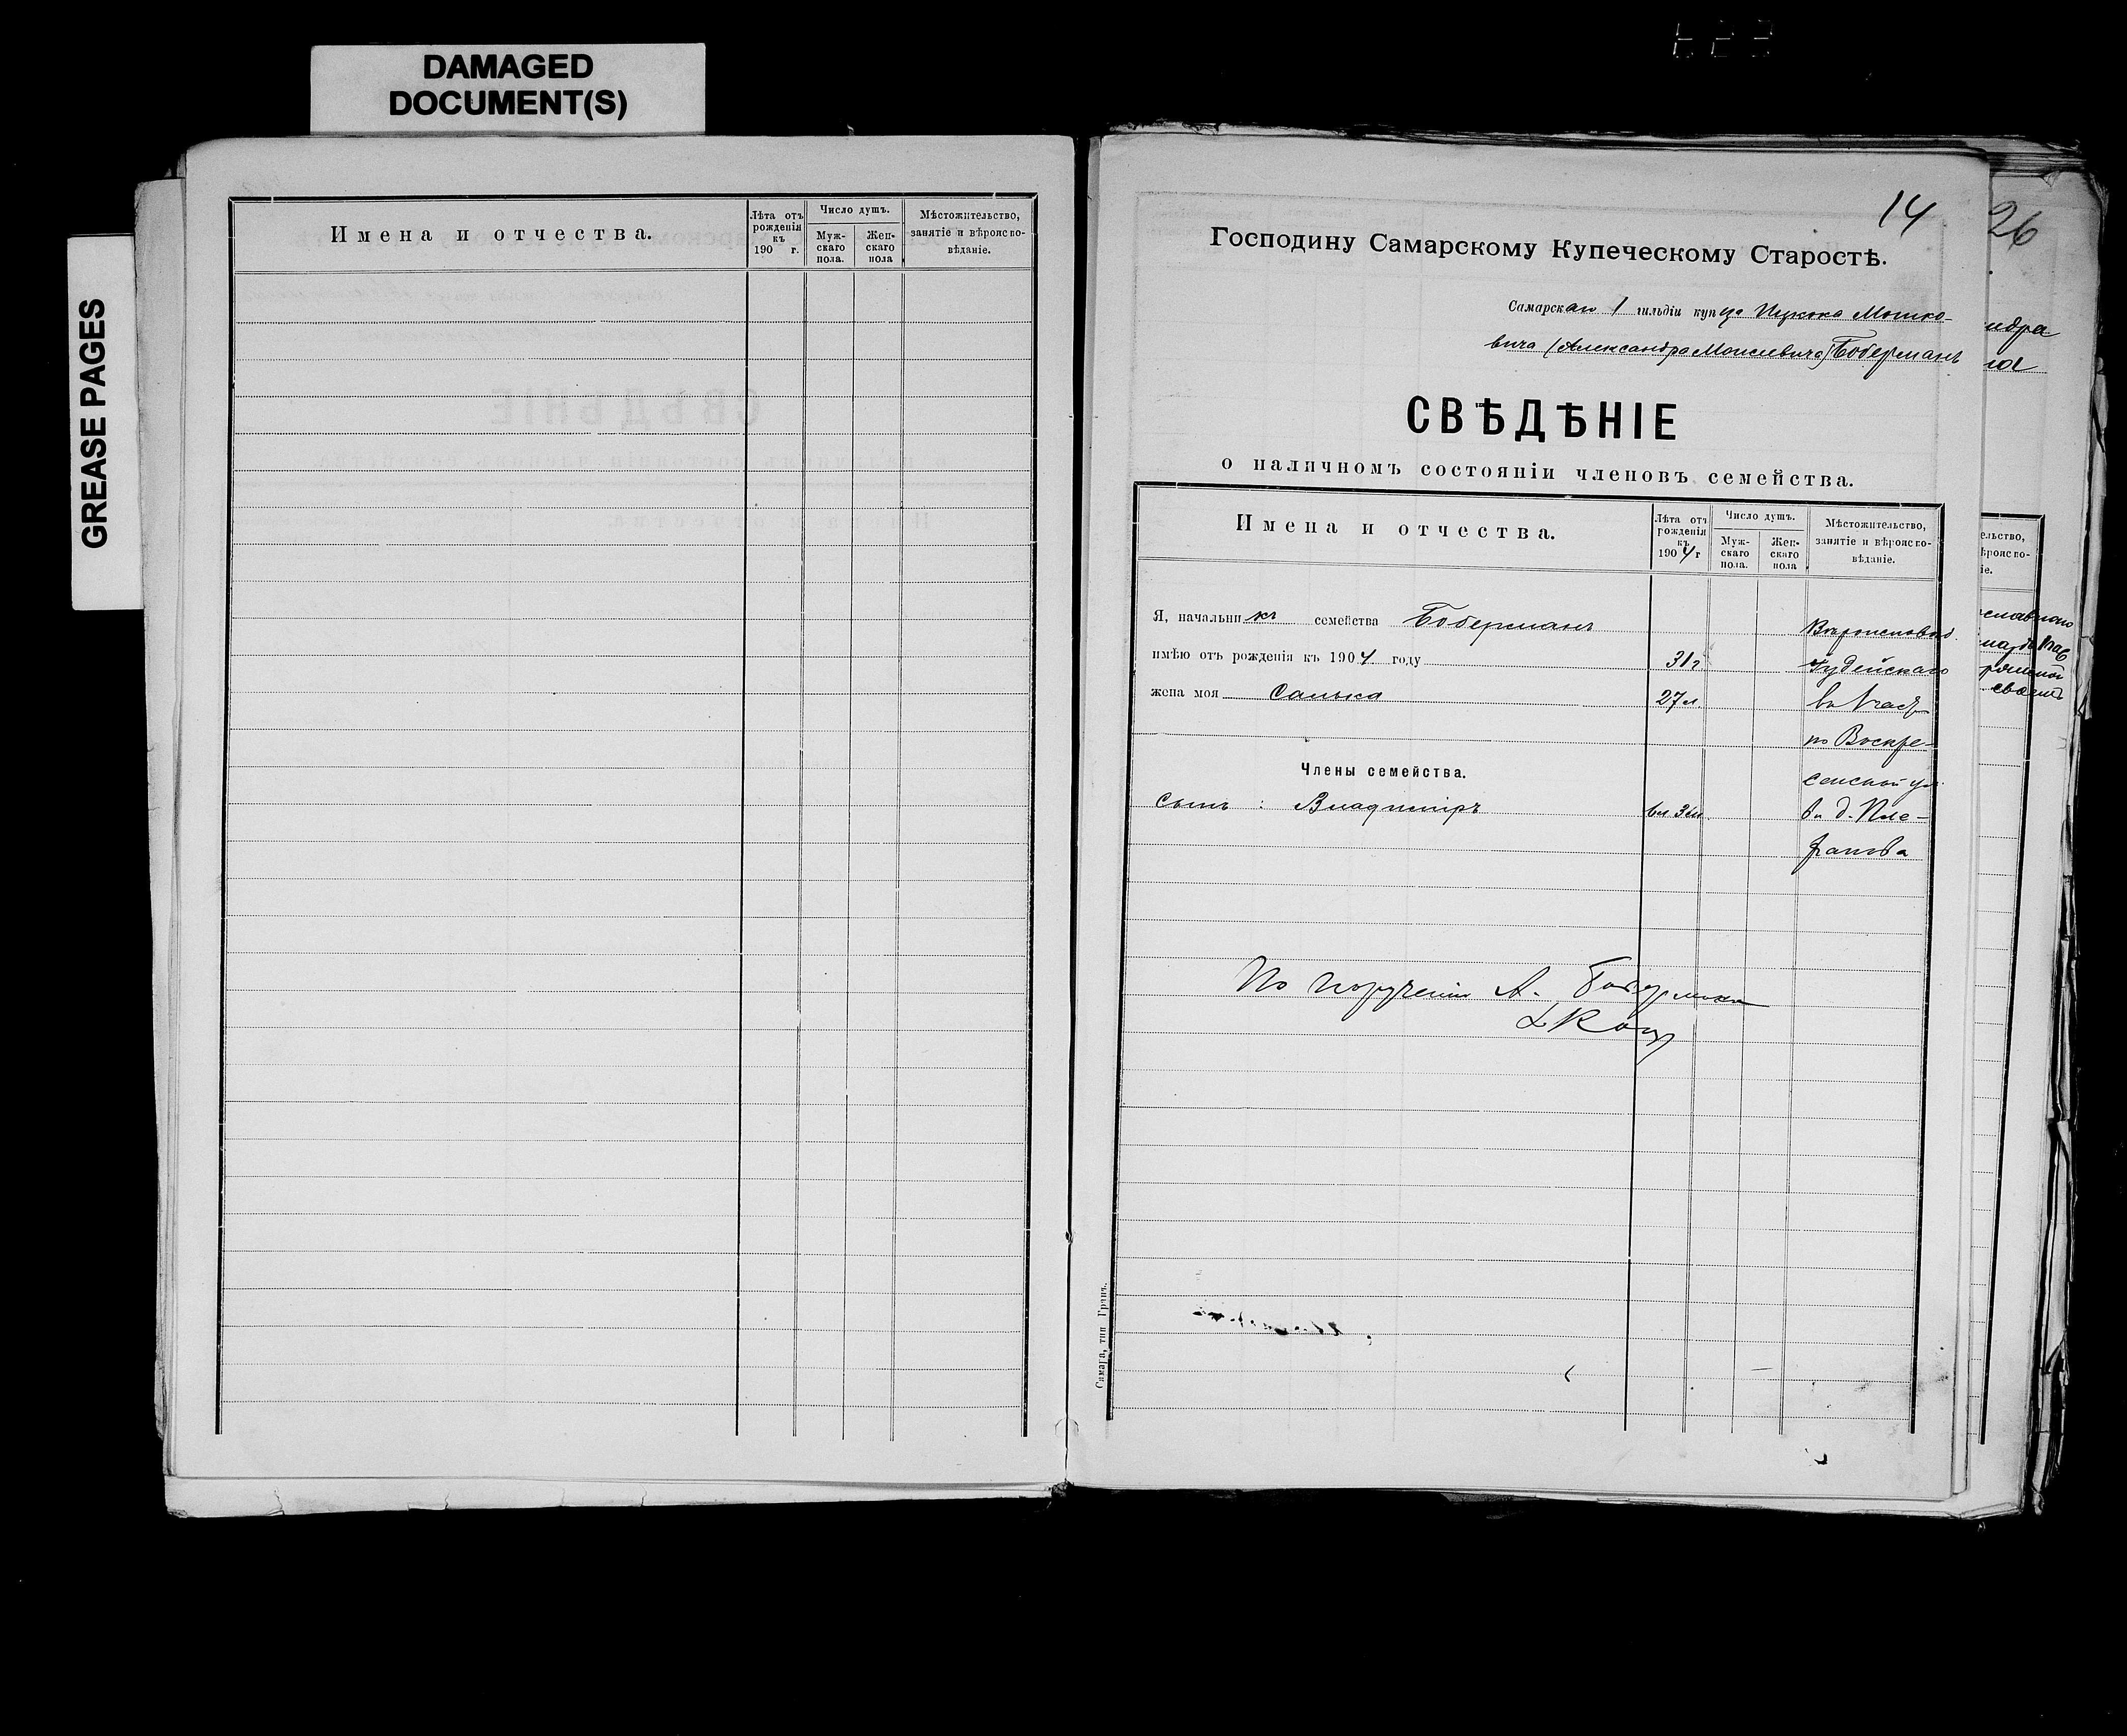 DAMAGED
DOCUMENT(S)
GREASE PAGES
Имена и отчества.
Лѣта отъ рожденія къ 190 г.
Число душъ.
Муж-скаго пола.
Жен-скаго пола
Мѣстожительство, занятіе и вѣроиспо-вѣданіе.
14
Господину Самарскому Купеческому Старостѣ.
Самарскаго 1 гильдіи купца Ицкока Мошко-
вича (Александра Моисеевича) Боберманъ
СВѢДѢНІЕ
о наличномъ состояніи членовъ семейства.
Имена и отчества.
Лѣта отъ рожденія къ 1904 г
Число душъ.
Муж-скаго пола.
Жен-скаго пола
Мѣстожительство, занятіе и вѣроиспо-вѣданіе.
Я, начальникъ семейства Боберманъ
Вѣроисповѣд.
имѣю отъ рожденія къ 1904 году 31 г Іудейскаго
жена моя 27 л. въ 1 част
по Воскре-
Члены семейства.
сенской ул.
сынъ : Владиміръ въ д. Пле-
ханова
По порученію А. Бобермана
Самара, тип Гранъ.
26
ндра